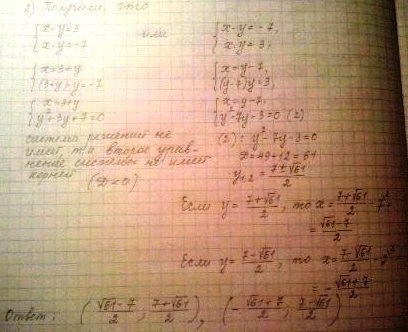 2) Получаем, что
{x-y=3
x·y=-7
или
{x-y=-7,
x·y=3;
{x=3+y
(3+y)·y=-7
{x=y-7,
(y-7)y=3;
{x=3+y
y²+3y+7=0
{x=y-7,
y²-7y-3=0 (2)
система решений не
имеет, т.к второе урав-
нение системы не имеет
корней
(D<0)
(2): y²-7y-3=0
D=49+12=61
y₁,₂=(7±√61)/2
Если y=(7+√61)/2, то x=(7+√61)/2-7=
=(√61-7)/2
Если y=(7-√61)/2, то x=(7-√61)/2-7=
=-(√61+7)/2
Ответ: ((√61-7)/2; (7+√61)/2), (-(√61+7)/2; (7-√61)/2)